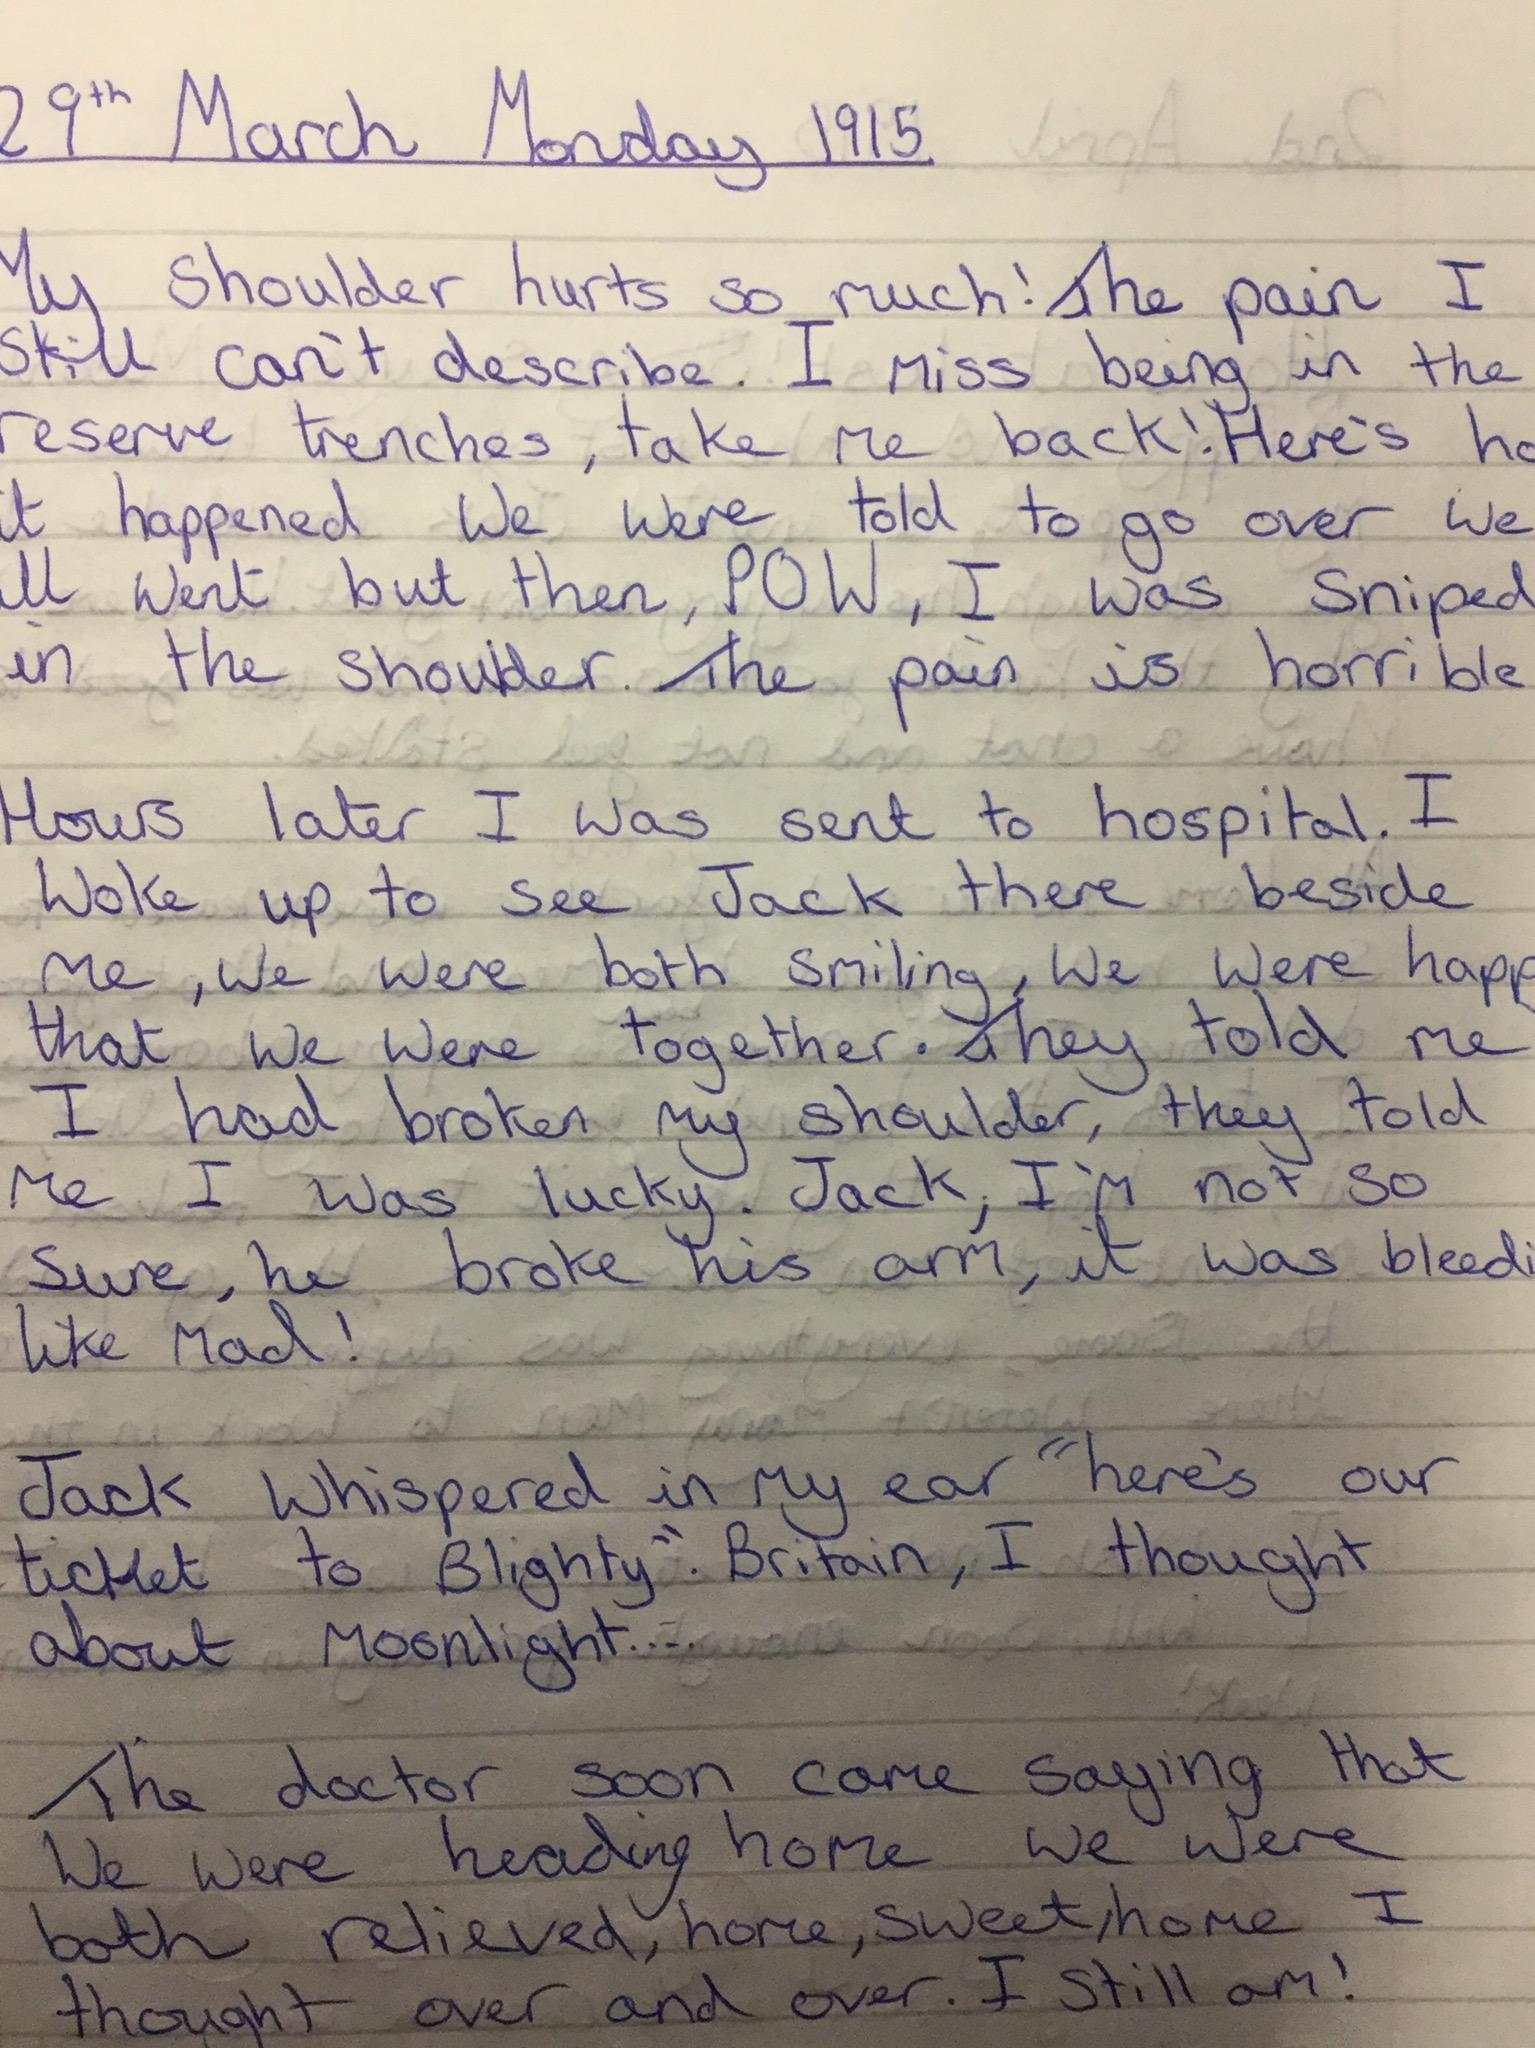 29th March Monday 1915
My shoulder hurts so much! The pain I
still can't describe. I miss being in the
reserve trenches, take me back! Here's ho
it happened We were told to go over we
all went but then, POW, I was sniped
in the shoulder. The pain is horrible
Hours later I was sent to hospital. I
woke up to see Jack there beside
me, we were both smiling, we were happ
that we were together. They told me
I had broken my shoulder, they told
me I was lucky. Jack, I'm not so
sure, he broke his arm, it was bleedi
like mad!
Jack whispered in my ear "here's our
ticket to Blighty". Britain, I thought
about Moonlight....
The doctor soon came saying that
we were heading home we were
both relieved, home, sweet, home I
thought over and over. I still am!